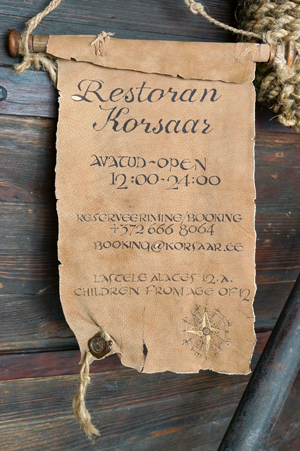 Restoran
Korsaar
AVATUD-OPEN
12:00-24:00
RESERVEERIMINE/BOOKING
+372 666 8064
BOOKING@KORSAAR.EE
LASTELE ALATES 12.A.
CHILDREN FROM AGE OF 12